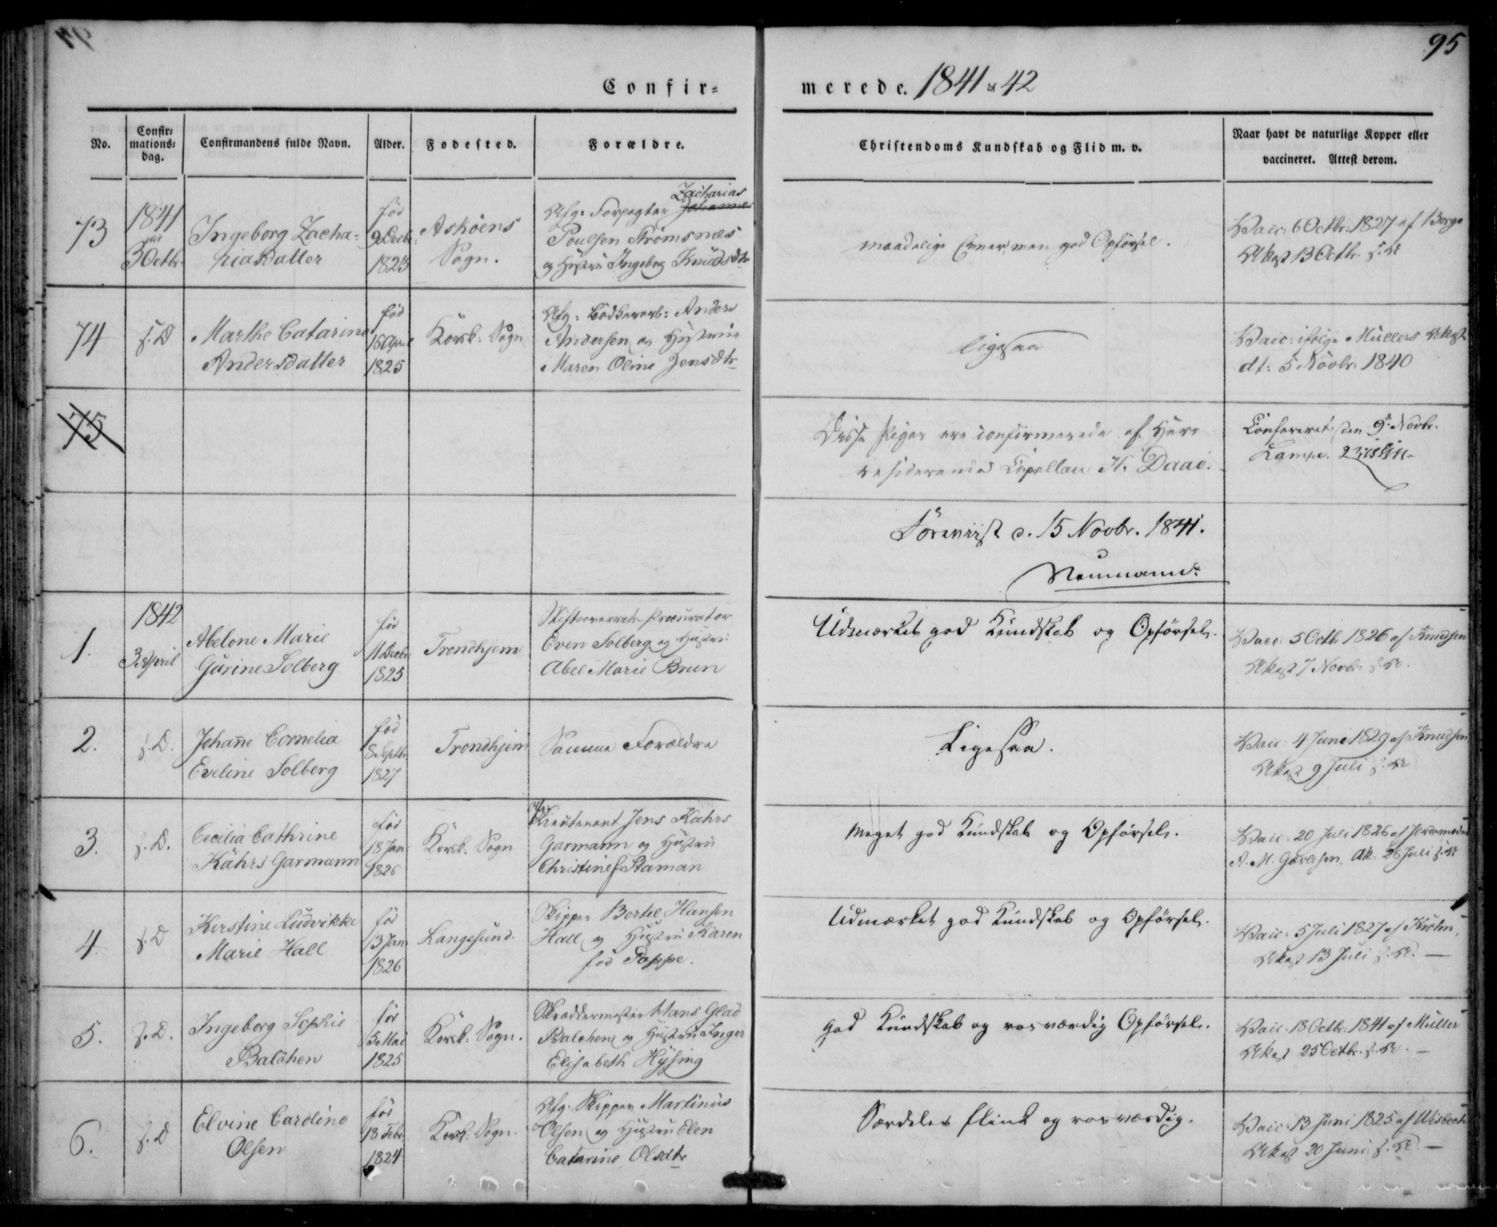 95
Confir-
merede. 1841 & 42
No.
Confir-
mations-
dag.
Confirmandens fulde Navn.
Alder.
Fodested.
Forældre.
Christendoms Kundskab og Flid m. v.
Naar havt de naturlige Kopper eller
vaccineret. Attest derom.
73
1841
3 Octbr
Ingeborg Zacha-
riaDatter
fød
9 Decbr
1823
Askøens
Sogn.
Afg: Forpagter Zacharias
Johannes
Poulsen Strømsnæs
og Hustru Ingeborg Knudsdtr
maadelige Evner, men god Opførsel.
Vacc: 6 Octbr. 1827 af Borge
Attest 13 Octbr. s: A
74
s. D
Marthe Catarine
AndersDatter
fød
16 April
1825
Korsk: Sogn
Afg: Bødkersv: Anders
Andersen og Hustrue
Maren Oline Jensdtr
ligesaa
Vacc: ifølge Müllers Attest
dt: 5 Novbr. 1840
75
Disse Piger ere confirmerede af Herr
residerende Capellan H. Daae.
Confereret den 9de Novbr.
Foreviist d. 15 Novbr. 1841.
Neumann
1.
1842
3 April
Abelone Marie
Garine Solberg
fød
11 Decbr
1825
Trondhjem
Stiftsoverrets-Procurator
Even Solberg og Hustru
Abel Marie Brun
Udmærket god Kundskab og Opførsel.
Vacc: 5 Octb. 1826 af Knudsen
Attest 7 Novbr s: A.
2.
s. D.
Johanne Cornelia
Eveline Solberg
fød
8 Septbr
1827
Trondhjem
Samme Forældre
Ligesaa.
Vacc: 4 Juni 1829 af Knudsen
Attest 9 Juli s: A
3.
s. D.
Cecilia Cathrine
Kahrs Garmann
fød
18 Jan
1826
Korsk. Sogn
Lieutenant Jens Kahrs
Garmann og Hustru
Christine Staman
Meget god Kundskab og Opførsel.
Vacc: 20 Juli 1826 af
At. 28 Juli s: A
4
s. D
Kirstine Ludvikke
Marie Hall
fød
3 Jan
1826
Langesund.
Skipper Bertel Hansen
Hall og Hustru Karen
fød Poppe.
Udmærket god Kundskab og Opførsel.
Vacc: 5 Juli 1827 af
Attest 13 Juli s: A. —
5.
s. D.
Ingeborg Sophie
Balchen
fød
5 Mai
1825
Korsk. Sogn.
Skræddermester Hans Glad
Balchen og Hustru Inger
Elisabeth Hysing
god Kundskab og rosværdig Opførsel.
Vacc: 18 Octbr. 1841 af Müller
Attest 25 Octbr. s: A. —
6.
s. D
Elvine Cardine
Olsen
fød
18 Febr
1824
Korsk. Sogn.
Afg: Skipper Martinus
Olsen og Hustru Elen
Catarine Olsdtr
Særdeles flink og rosværdig.
Vacc: 13 Juni 1825 af Wisbech
Attest 20 Juni s: A —